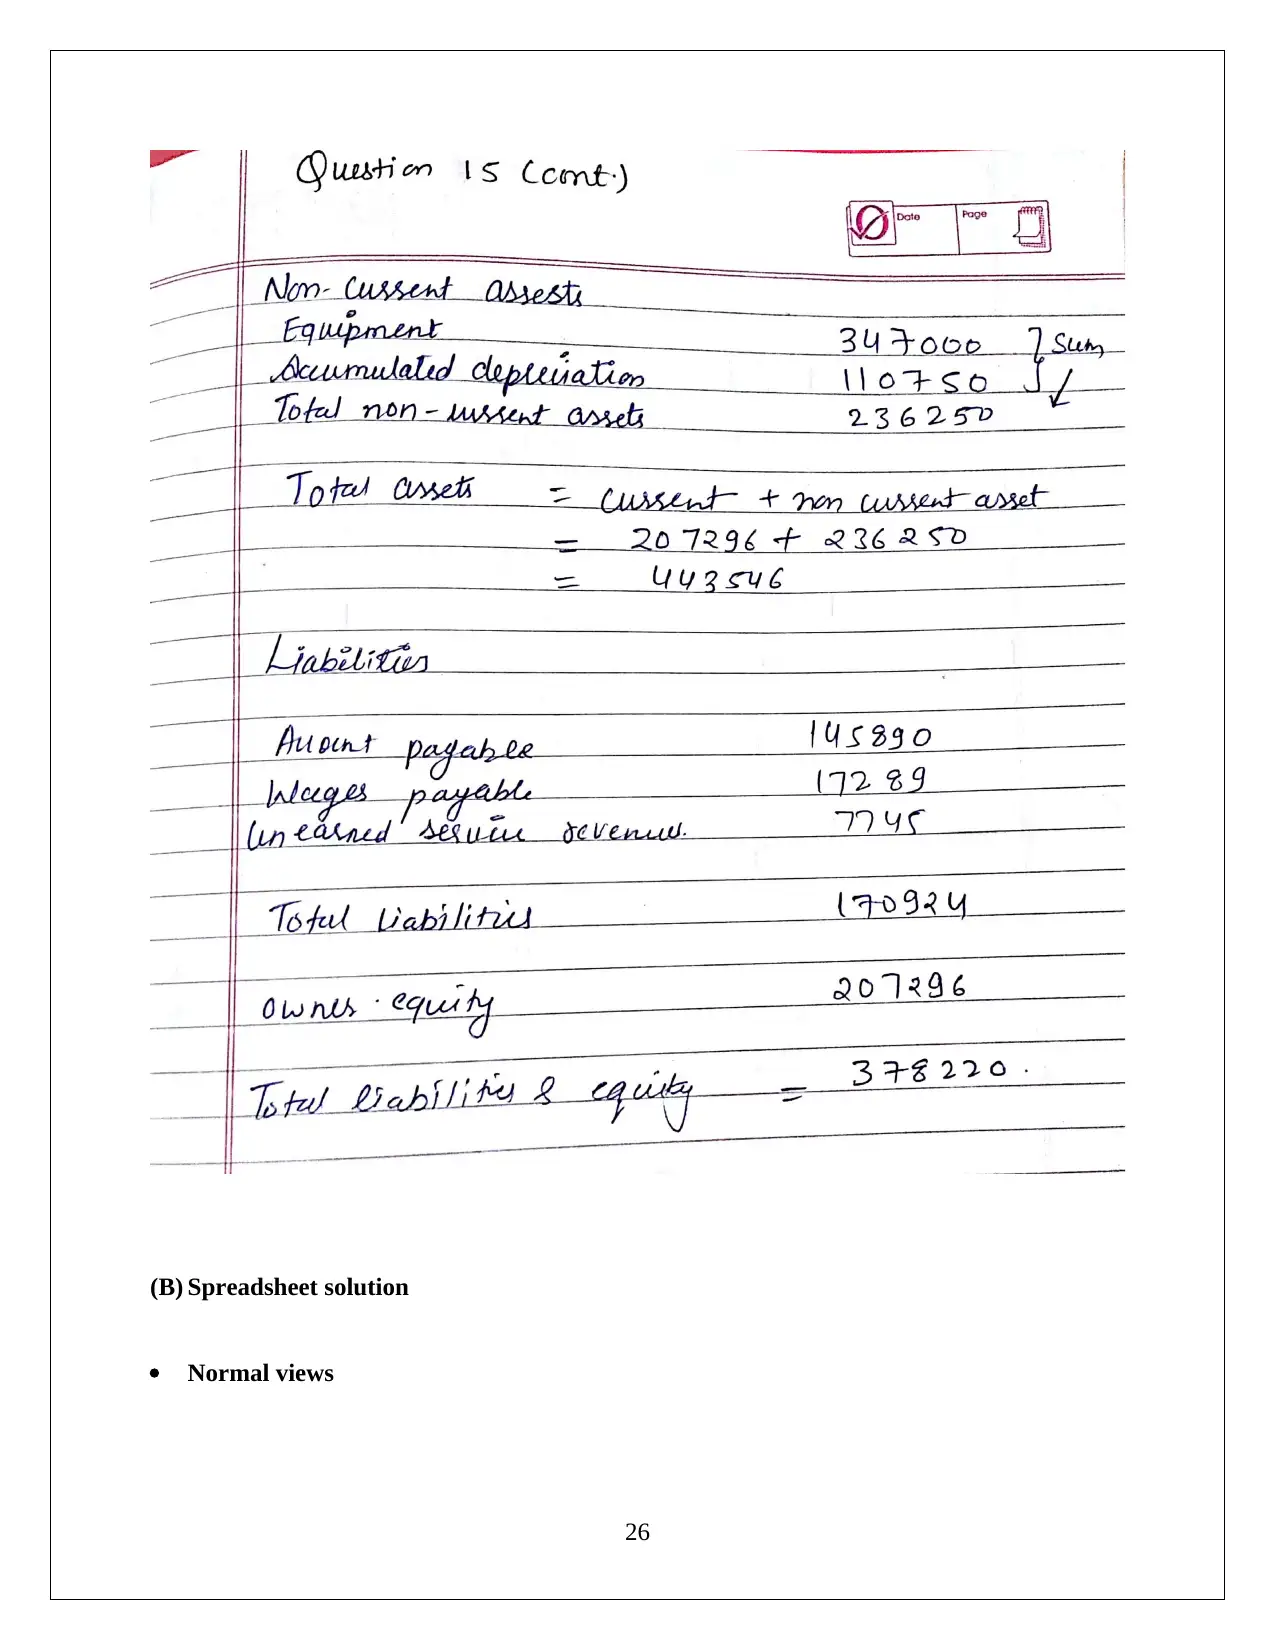 Question 15 (cont.)
Date Page
Non-Current assests
Equipment 347000
Accumulated depreciation 110750 Sum
Total non-current assets 236250
Total assets = current + non current asset
= 207296 + 236250
= 443546
Liabilities
Account payable 145890
Wages payable 17289
Unearned service revenue. 7745
Total Liabilities 170924
owner equity 207296
Total liabilities & equity = 378220.
(B) Spreadsheet solution
• Normal views
26